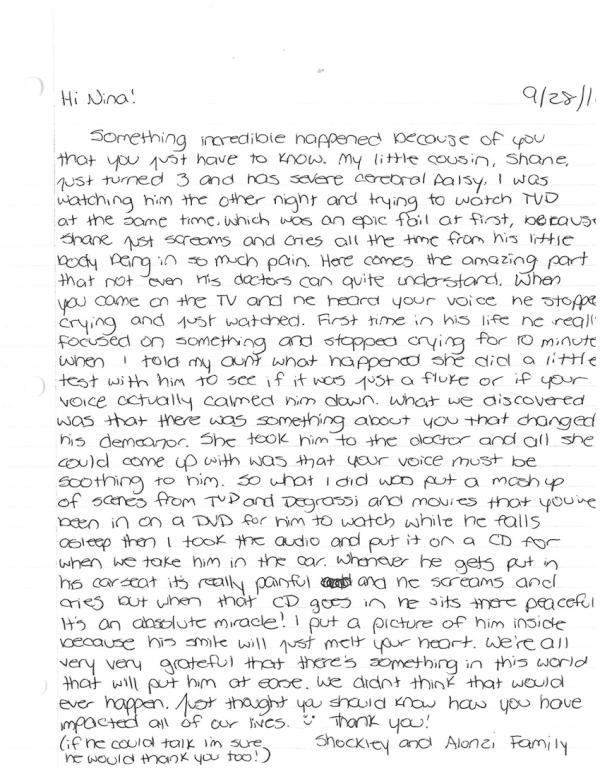 Hi Nina!
9/28/1
Something incredible happened because of you
that you just have to know. My little cousin, Shane,
just turned 3 and has severe cerebral palsy. I was
watching him the other night and trying to watch TVD
at the same time. which was an epic fail at first, because
Shane just screams and cries all the time from his little
body being in so much pain. Here comes the amazing part
that not even his doctors can quite understand. When
you came on the TV and he heard your voice he stoppe
crying and just watched. First time in his life he reall
focused on something and stopped crying for 10 minute
when I told my aunt what happened she did a little
test with him to see if it was just a fluke or if your
voice actually calmed him down. What we discovered
was that there was something about you that changed
his demeanor. She took him to the doctor and all she
could come up with was that your voice must be
soothing to him. So what I did was put a mash up
of scenes from TVD and Degrassi and movies that you've
been in on a DVD for him to watch while he falls
asleep then I took the audio and put it on a CD for
when we take him in the car. Whenever he gets put in
his carseat it's really painful and he screams and
cries but when that CD goes in he sits there peaceful
It's an absolute miracle! I put a picture of him inside
because his smile will just melt your heart. We're all
very very grateful that there's something in this world
that will put him at ease. We didnt think that would
ever happen. Just thought you should know how you have
impacted all of our lives. Thank you!
(if he could talk im sure Shockley and Alonzi Family
he would thank you too!)